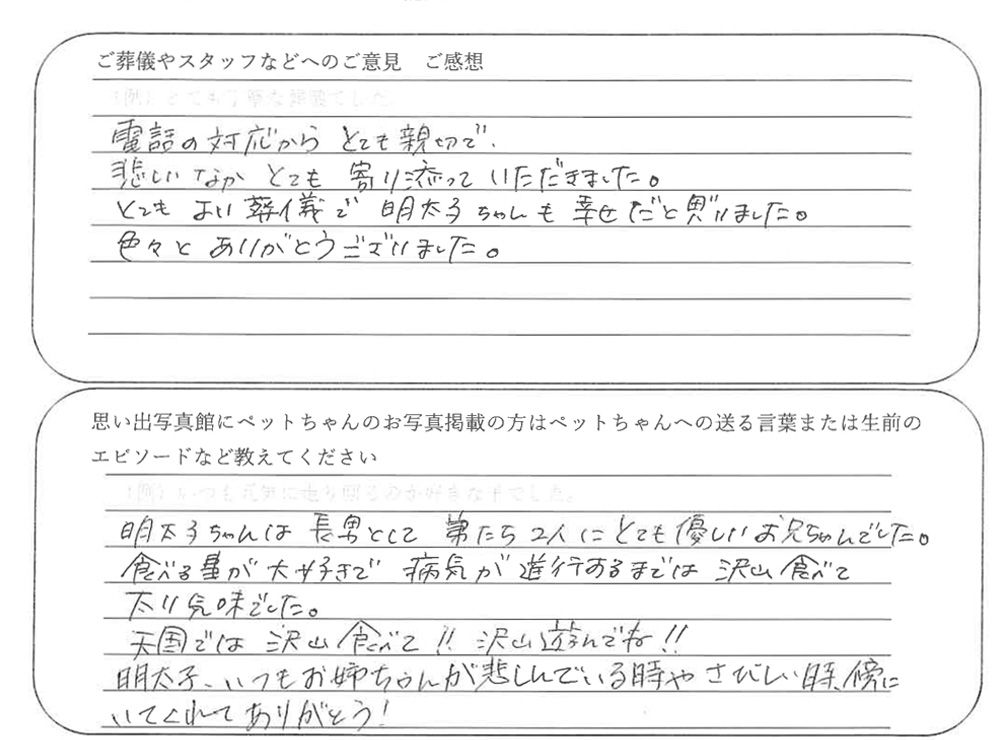 ご葬儀やスタッフなどへのご意見　ご感想
(例)とても丁寧な葬儀でした。
電話の対応から とても親切で、
悲しいなか とても 寄り添って いただきました。
とても よい 葬儀で 明太子ちゃんも 幸せだと思いました。
色々と ありがとうございました。
思い出写真館にペットちゃんのお写真掲載の方はペットちゃんへの送る言葉または生前の
エピソードなど教えてください
(例)いつも元気に走り回るのが好きな子でした。
明太子ちゃんは 長男として 弟たち2人にとても優しいお兄ちゃんでした。
食べる事が 大好きで 病気が 進行するまでは 沢山食べて
太り気味でした。
天国では 沢山食べて!! 沢山遊んでね!!
明太子、いつもお姉ちゃんが悲しんでいる時や さびしい時、傍に
いてくれてありがとう!